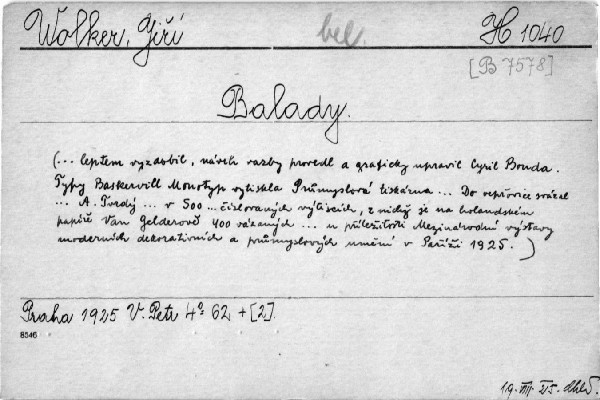 Wolker, Jiří bel. H 1040
[B 7578]
Balady.
(... leptem vyzdobil, návrh vazby provedl a graficky upravil Cyril Bouda.
Typy Baskervill Monotyp vytiskla Průmyslová tiskárna ... Do vepřovice svázal
... A. Tvrdý ... v 500 ... číslovaných výtiscích, z nichž je na holandském
papíře Van Gelderově 400 vázaných ... u příležitosti Mezinárodní výstavy
moderních dekorativních a průmyslových umění v Paříži 1925.)
Praha 1925 V. Petr 4° 62 + [2].
8546
19. VIII. 25.